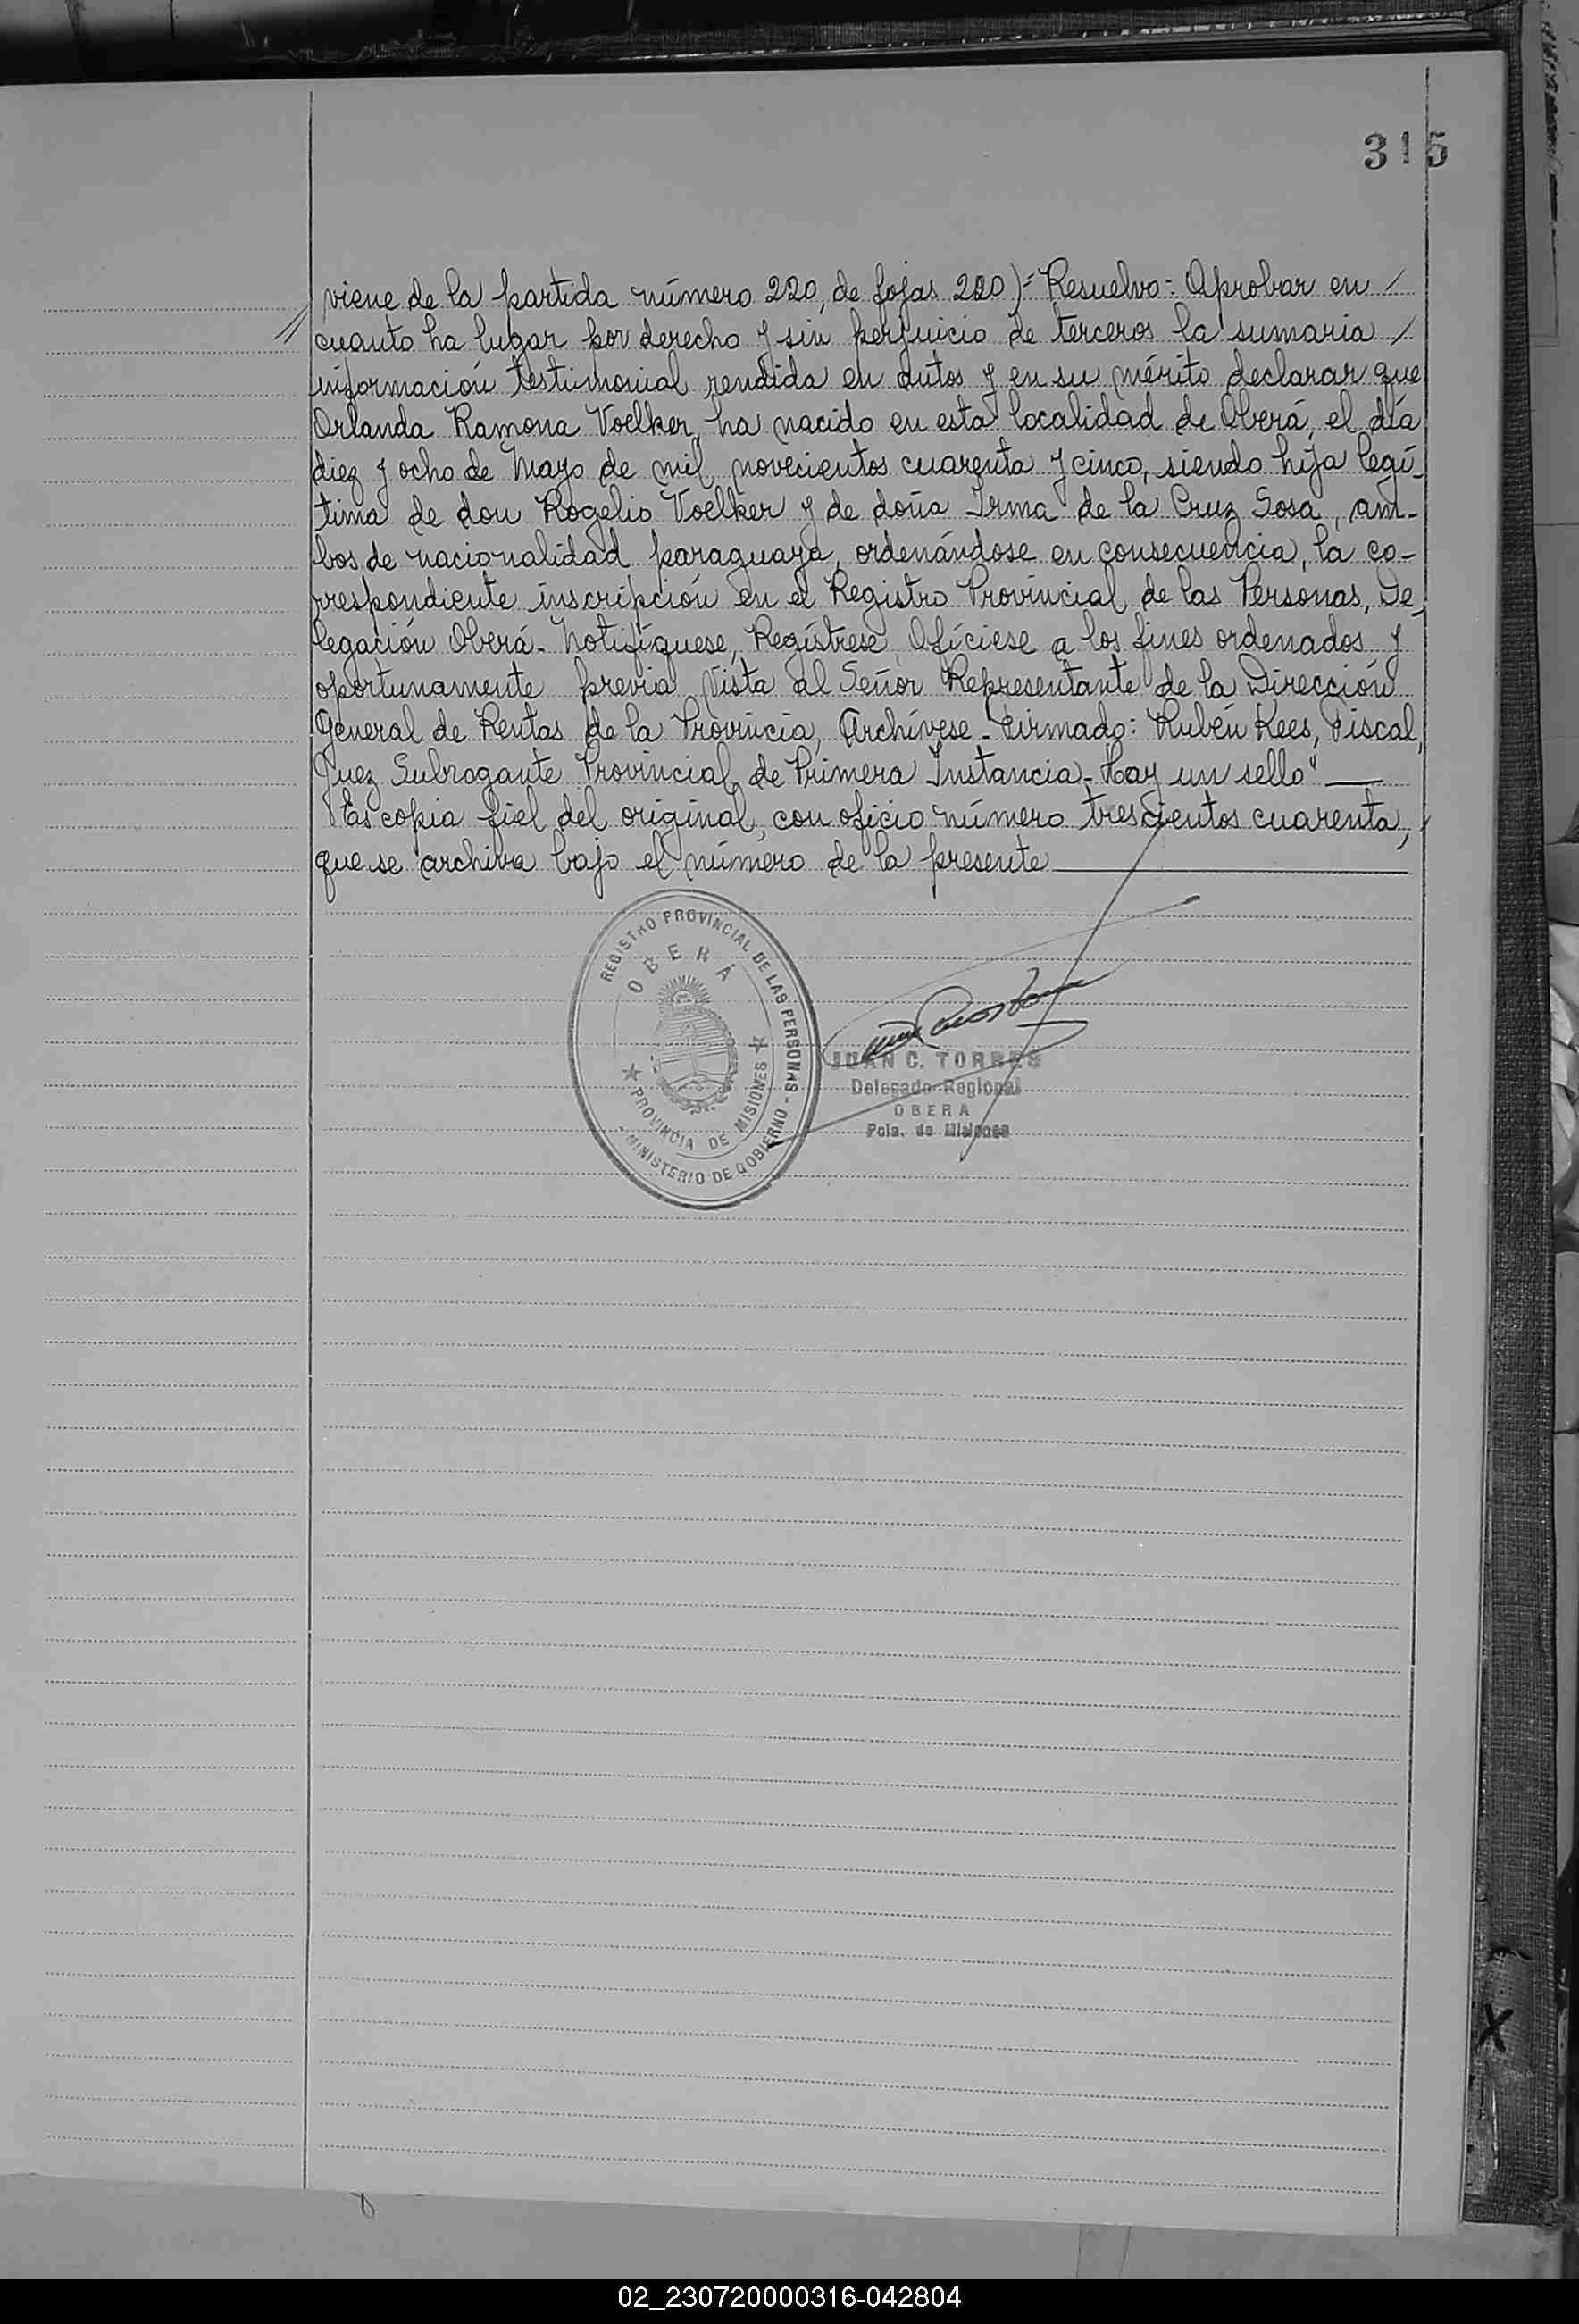 315
viene de la partida número 220, de fojas 220)- Resuelvo: Aprobar en /
// cuanto ha lugar por derecho y sin perjuicio de terceros la sumaria /
información testimonial rendida en autos y en su mérito declarar que
Orlanda Ramona Voelker, ha nacido en esta localidad de Oberá, el día
diez y ocho de Mayo de mil novecientos cuarenta y cinco, siendo hija legí-
tima de don Rogelio Voelker y de doña Irma de la Cruz Sosa, am-
bos de nacionalidad paraguaya, ordenándose en consecuencia, la co-
rrespondiente inscripción en el Registro Provincial de las Personas, De-
legación Oberá.- Notifíquese, Regístrese, Ofíciese a los fines ordenados y
oportunamente previa Vista al Señor Representante de la Dirección
General de Rentas de la Provincia, Archívese.- Firmado: Rubén Kees, Fiscal,
Juez Subrogante Provincial de Primera Instancia.- Hay un sello"
Es copia fiel del original, con oficio número trescientos cuarenta,
que se archiva bajo el número de la presente
REGISTRO PROVINCIAL DE LAS PERSONAS - MINISTERIO DE GOBIERNO -
OBERÁ
★ PROVINCIA DE MISIONES ★
JUAN C. TORRES
Delegado Regional
OBERA
Pcia. de Misiones
X
02_230720000316-042804